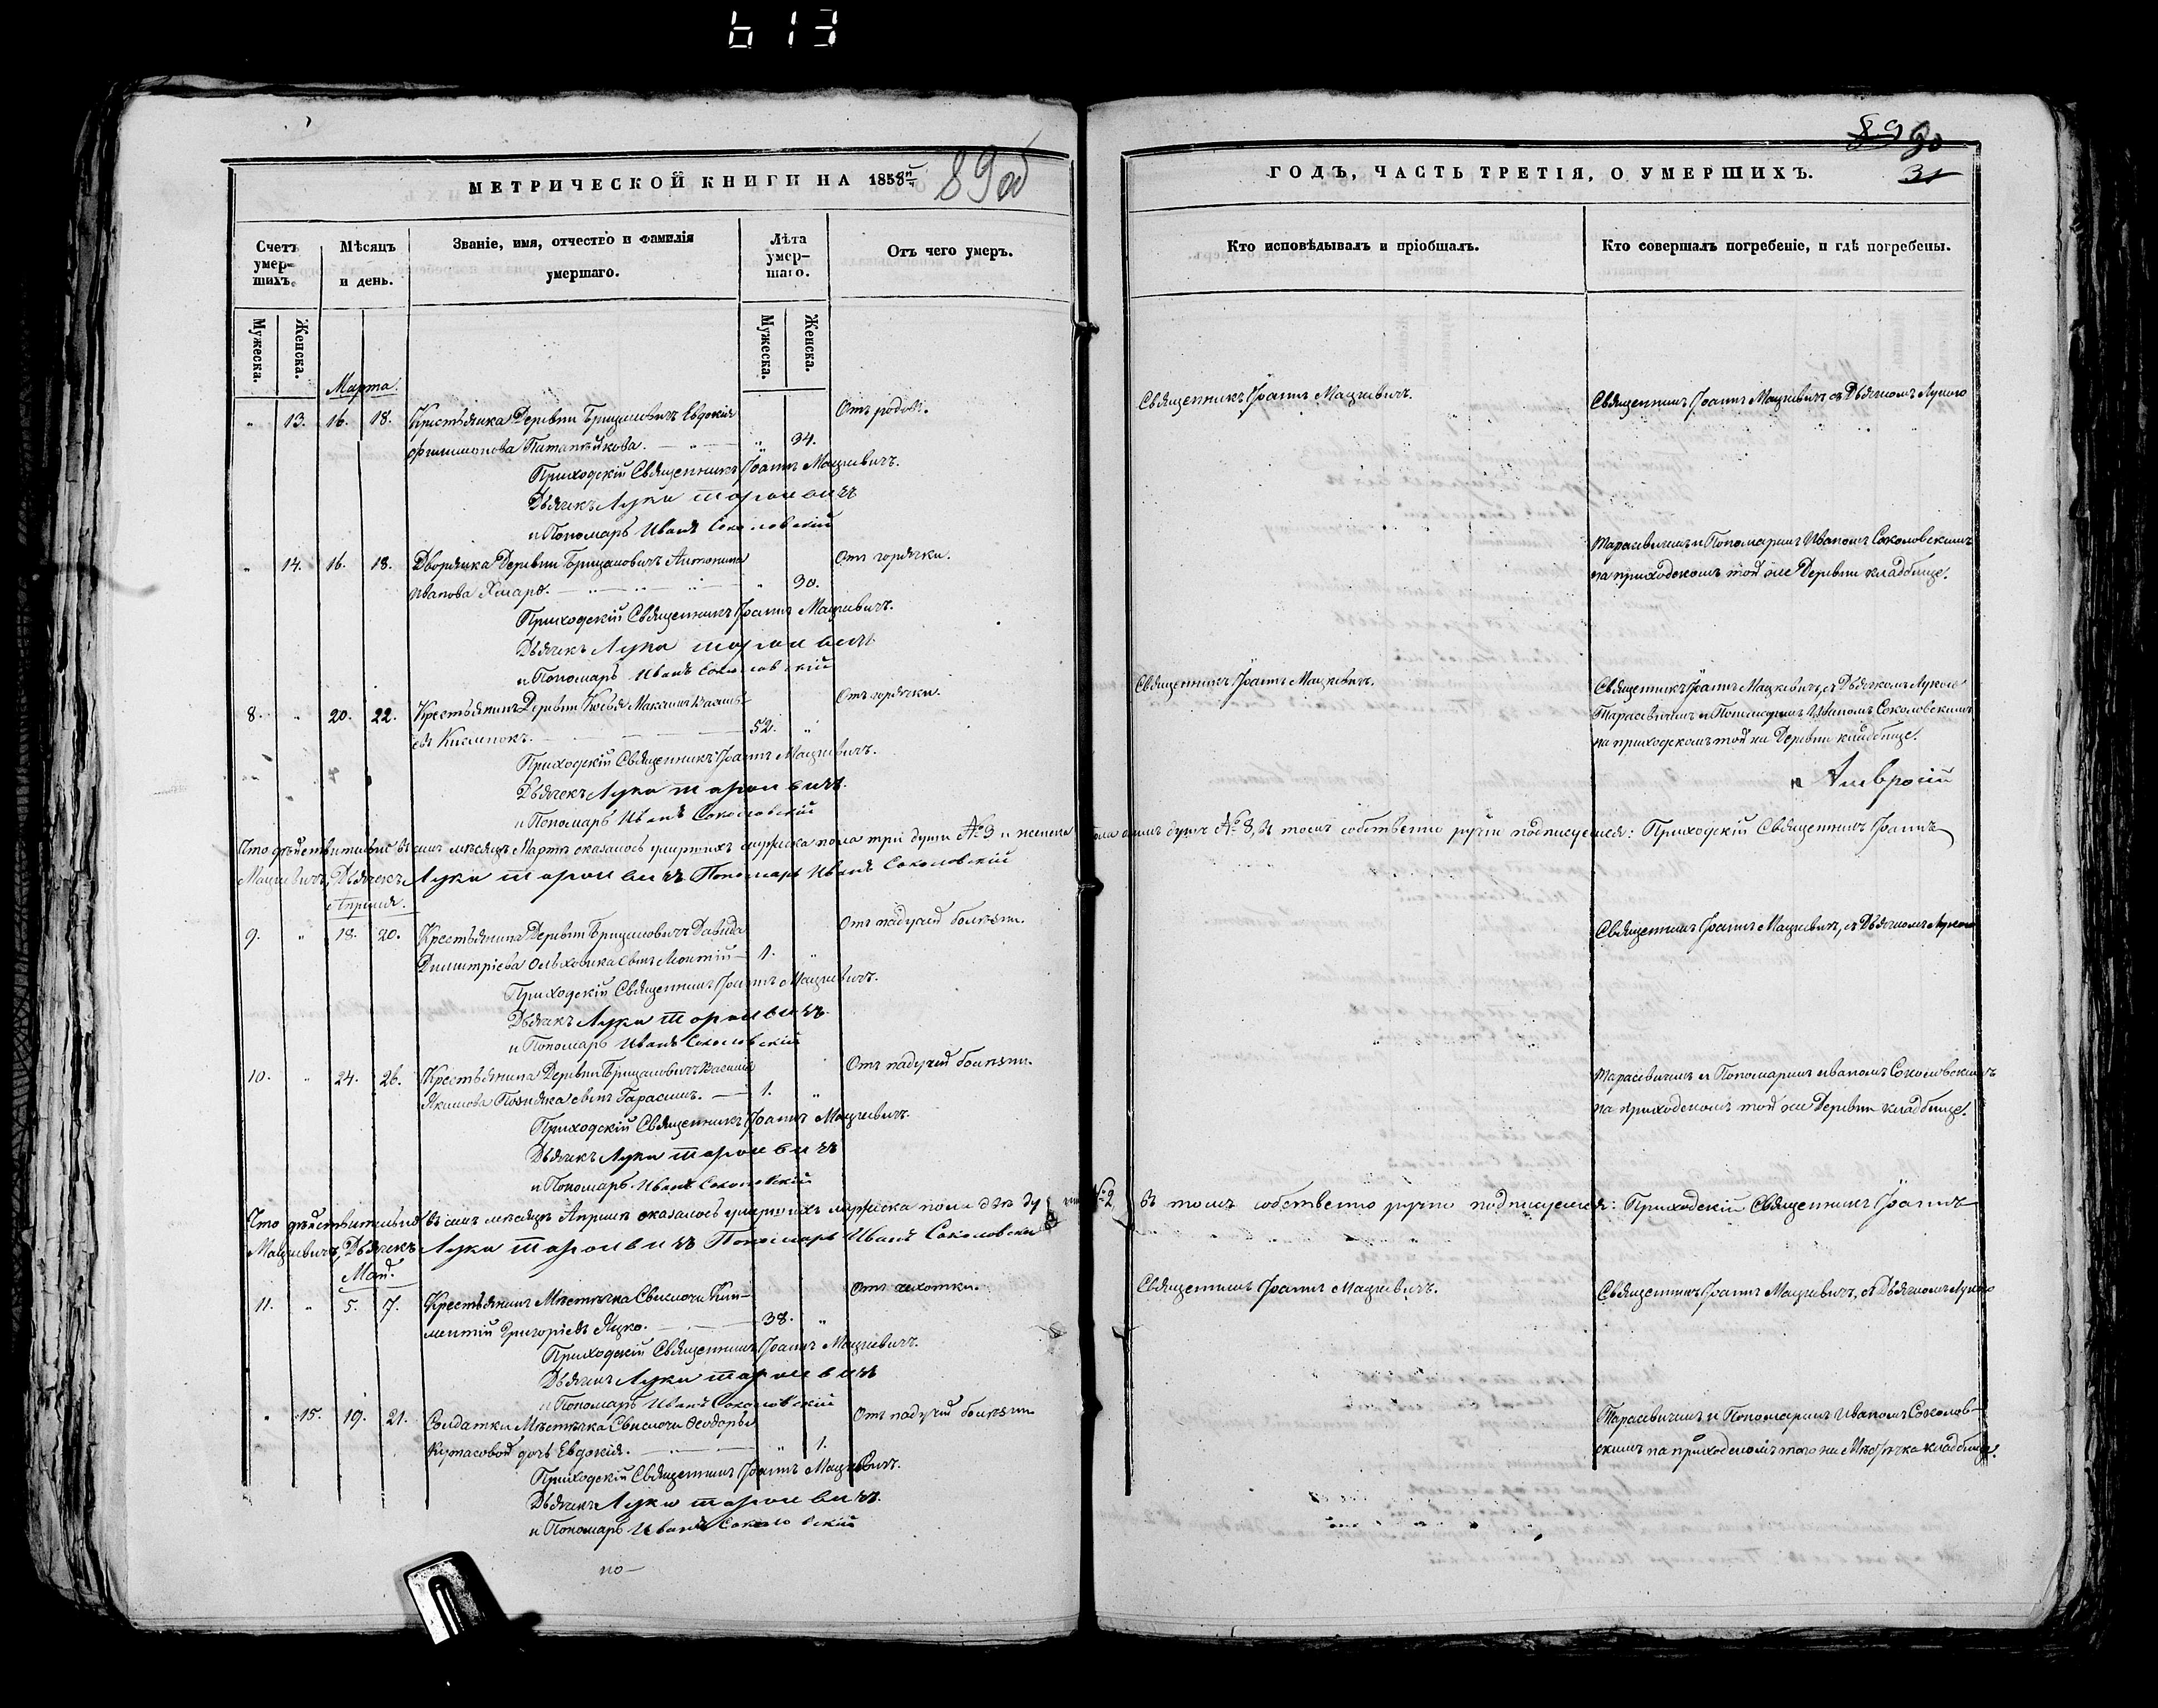 613
МЕТРИЧЕСКОЙ КНИГИ НА 1858й
89об
Счетъ умер-шихъ.
Мѣсяцъ и день.
Званіе, имя, отчество и фамилія умершаго.
Лѣта умер-шаго.
Отъ чего умеръ.
Мужеска.
Женска.
Мужеска.
Женска.
Марта.
" 13. 16. 18. Крестьянка Деревни Брицаловичъ Евдокія Отъ родовъ.
Филимонова " 34.
Приходскій Священникъ Іоаннъ Мацкевичъ.
Дьячекъ Лука Тарасевичъ
и Пономарь Иванъ Соколовскій
" 14. 16. 18. Дворянка Деревни Брицаловичъ Антонина Отъ горячки.
Иванова " 30.
Приходскій Священникъ Іоаннъ Мацкевичъ.
Дьячекъ Лука Тарасевичъ
и Пономарь Иванъ Соколовскій
8. " 20. 22. Крестьянинъ Деревни Максимъ Отъ горячки.
52. "
Приходскій Священникъ Іоаннъ Мацкевичъ.
Дьячекъ Лука Тарасевичъ
и Пономарь Иванъ Соколовскій
Что дѣйствительно въ семъ мѣсяцѣ Мартѣ оказалось умершихъ мужеска пола три души №3 и женска
Мацкевичъ, Дьячекъ Лука Тарасевичъ Пономарь Иванъ Соколовскій
Апрѣля.
9. " 18. 20. Крестьянина Деревни Брицаловичъ Давида Отъ падучей болѣзни.
Димитріева сынъ 1. "
Приходскій Священникъ Іоаннъ Мацкевичъ.
Дьячекъ Лука Тарасевичъ
и Пономарь Иванъ Соколовскій
10. " 24. 26. Крестьянина Деревни Брицаловичъ Василія Отъ падучей болѣзни.
Якимова Позняка сынъ Герасимъ. 1. "
Приходскій Священникъ Іоаннъ Мацкевичъ.
Дьячекъ Лука Тарасевичъ
и Пономарь Иванъ Соколовскій
Что дѣйствительно въ семъ мѣсяцѣ Апрѣлѣ оказалось умершихъ мужеска пола двѣ ду
Мацкевичъ, Дьячекъ Лука Тарасевичъ Пономарь Иванъ Соколовскій
Май.
11. " 5. 7. Крестьянинъ Мѣстечка Свислочи Кли- Отъ чахотки.
ментій Григорьевъ Яцко. 38. "
Приходскій Священникъ Іоаннъ Мацкевичъ.
Дьячекъ Лука Тарасевичъ
и Пономарь Иванъ Соколовскій
" 15. 19. 21. Солдатки Мѣстечка Свислочи Ѳеодоры Отъ падучей болѣзни
дочь Евдокія. " 1.
Приходскій Священникъ Іоаннъ Мацкевичъ.
Дьячекъ Лука Тарасевичъ.
и Пономарь Иванъ Соколовскій
по-
89 90
31
ГОДЪ, ЧАСТЬ ТРЕТІЯ, О УМЕРШИХЪ.
Кто исповѣдывалъ и пріобщалъ.
Кто совершалъ погребеніе, и гдѣ погребены.
Священникъ Іоаннъ Мацкевичъ. Священникъ Іоаннъ Мацкевичъ съ Дьячкомъ Лукою
Тарасевичемъ и Пономаремъ Иваномъ Соколовскимъ
на приходскомъ той же Деревни кладбище.
Священникъ Іоаннъ Мацкевичъ. Священникъ Іоаннъ Мацкевичъ, съ Дьячкомъ Лукою
Тарасевичемъ и Пономаремъ Иваномъ Соколовскимъ
на приходскомъ той же Деревни кладбище.
Амвросій
душъ №8, въ томъ собственно ручно подписуемся: Приходскій Священникъ Іоаннъ
Священникъ Іоаннъ Мацкевичъ, съ Дьячкомъ Лукою
Тарасевичемъ и Пономаремъ Иваномъ Соколовскимъ
на приходскомъ той же Деревни кладбище.
№2 въ томъ собственно ручно подписуемся: Приходскій Священникъ Іоаннъ
Священникъ Іоаннъ Мацкевичъ. Священникъ Іоаннъ Мацкевичъ, съ Дьячкомъ Лукою
Тарасевичемъ и Пономаремъ Иваномъ Соколов-
скимъ на приходскомъ того же Мѣстечка кладбище.